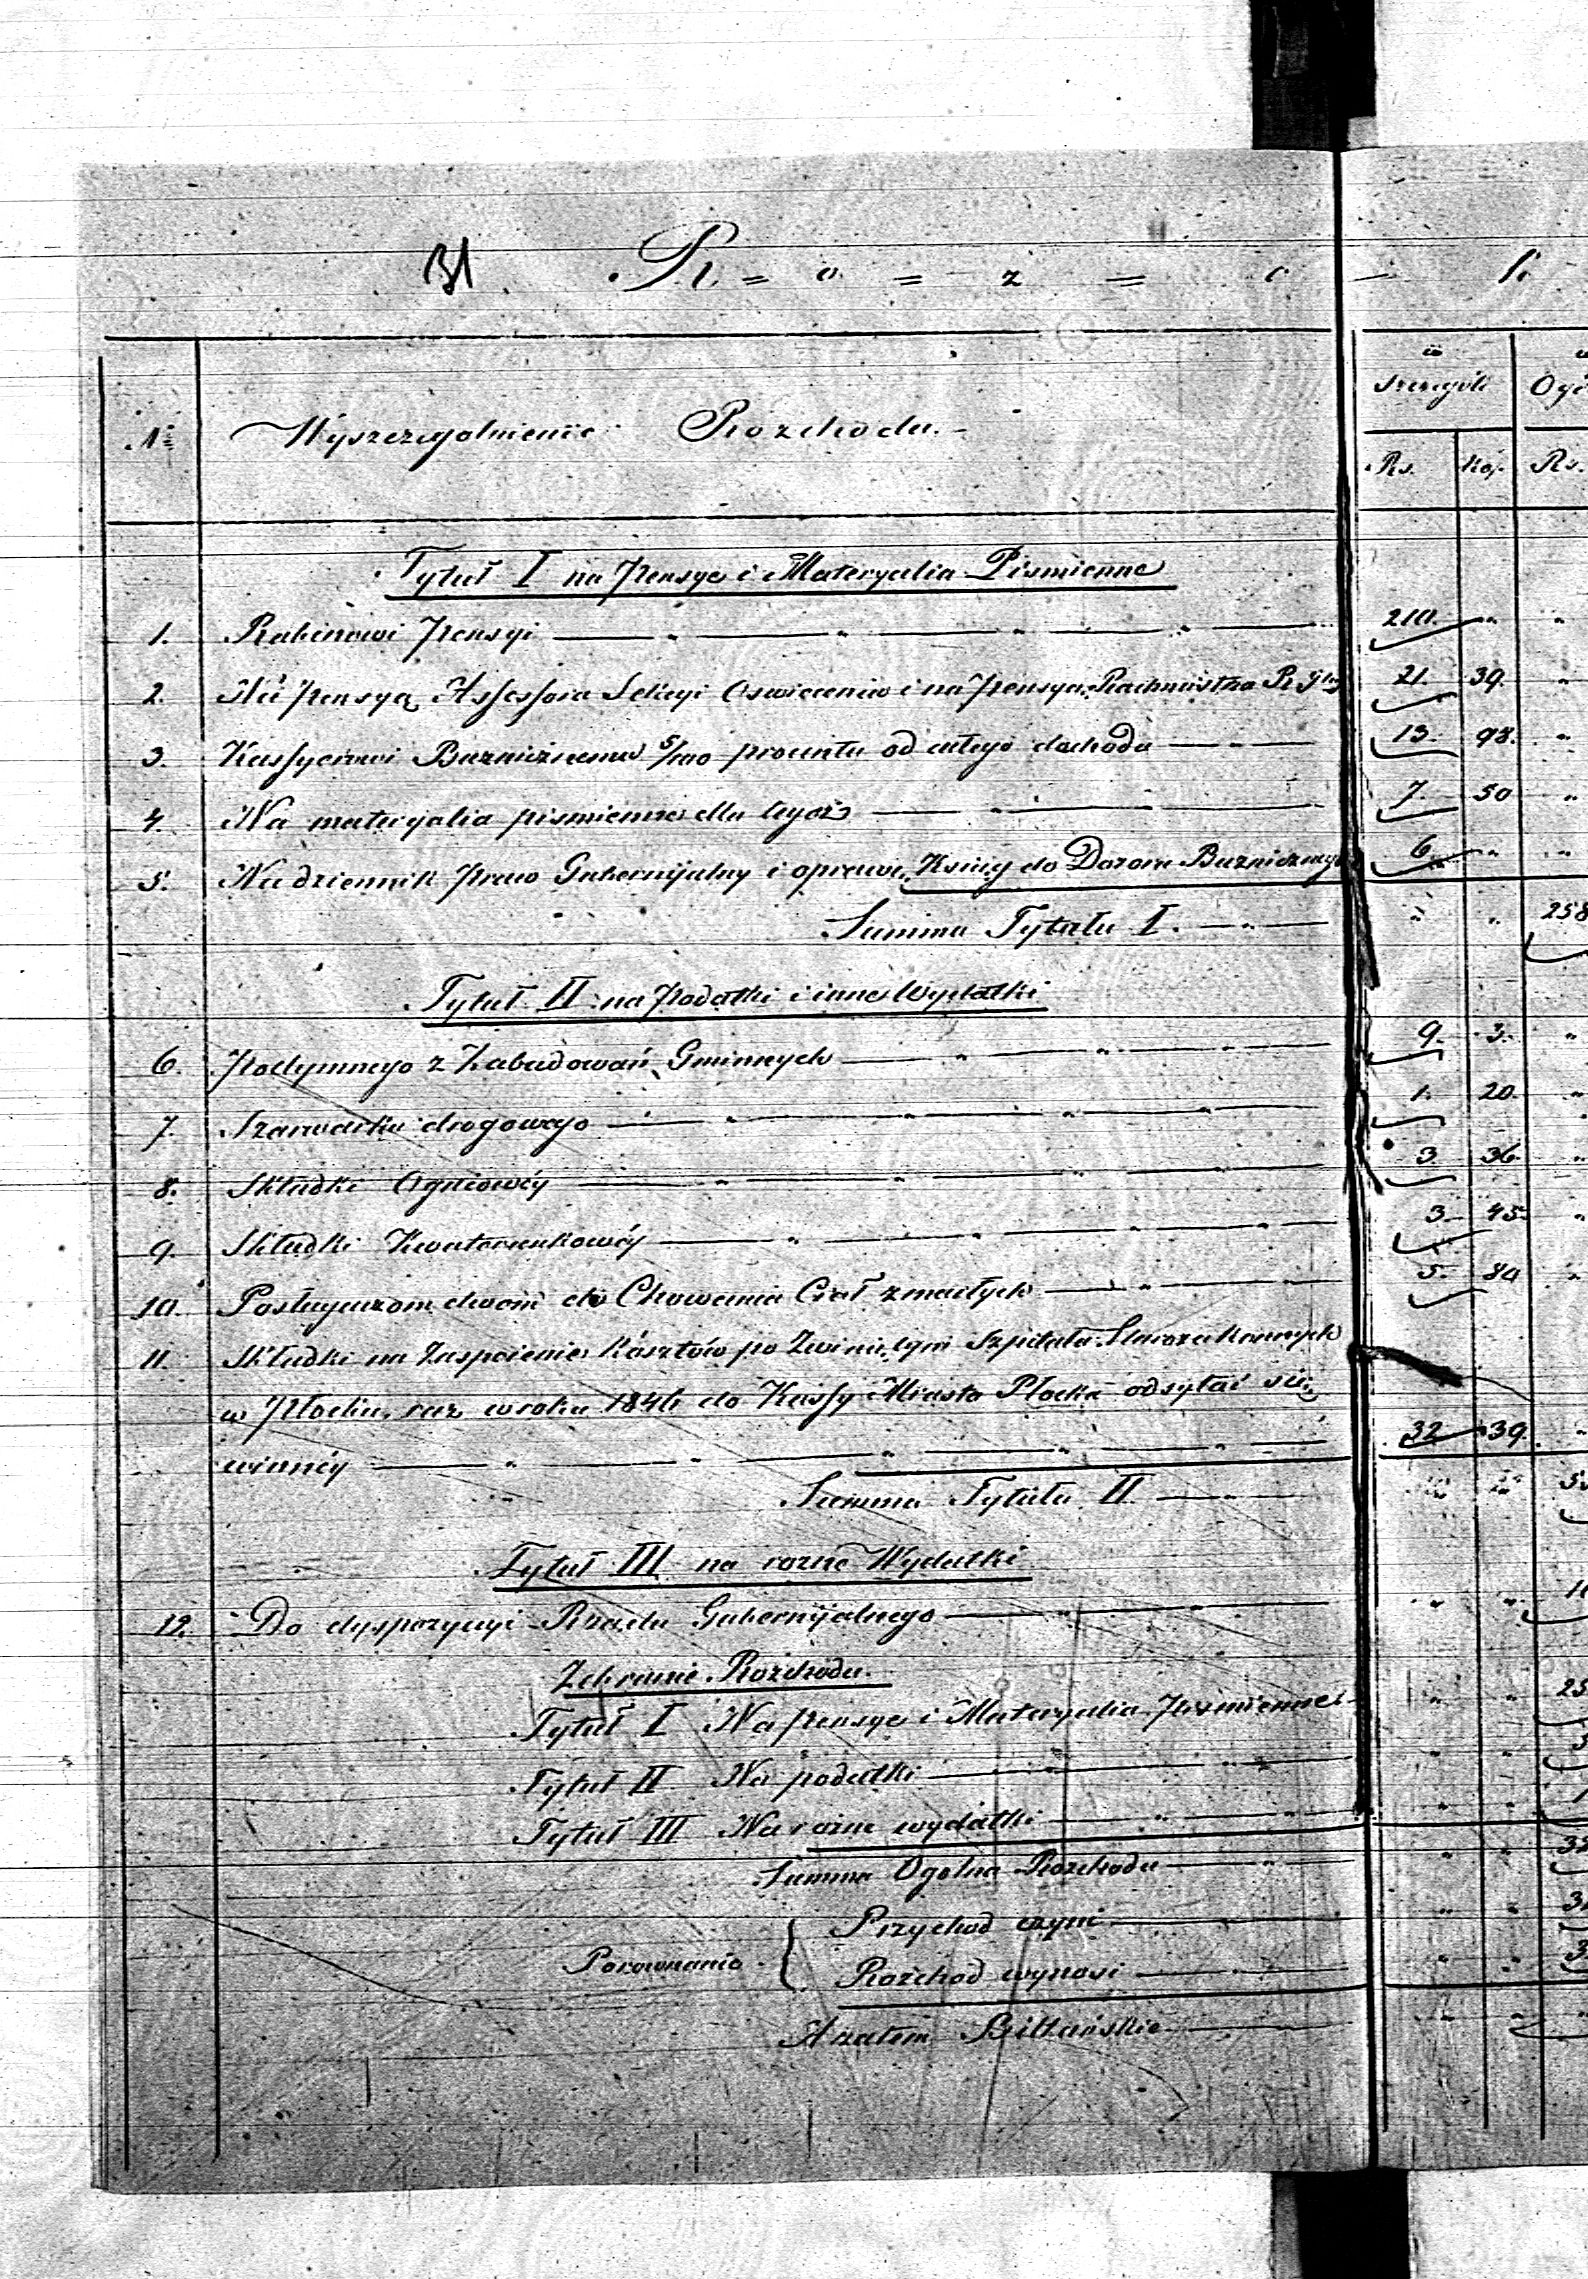 31 R = o = z = c — h
w w
Szczególe Ogó
№ Wyszczególnienie Rozchodu.
Rs. kop. Rs.
Tytuł I na Pensye i Materyalia Piśmienne
1. Rabinowi Pensyi — „ — „ — „ — „ — 210. „ „
2. Na Pensyą Assessora Sekcyi Oswiecenia i na Pensyą Rachmistrza R. Gbo 21. 39. „
3. Kassyerowi Bożniczemu 5/100 procentu od całego dochodu — „ — 13. 98. „
4. Na materyalia piśmienne dla tegoż — „ — 7. 50 „
5. Na dziennik Praw Gubernijalny i oprawę Xsiąg do Dozoru Bożniczego 6 „ „
Summa Tytułu I. — „ — „ „ 258
Tytuł II na Podatki i inne Wydatki
6. Podymnego z Zabudowań Gminnych — „ — „ — „ — 9. 3. „
7. Szarwarku drogowego — „ — „ — „ — „ — 1. 20. „
8. Składki Ogniowéy — „ — „ — „ — 3 36 „
9. Składki Kwaterunkowéy — „ — „ — „ — „ — 3. 45 „
10. Posługaczom dwom do Chowania Ciał zmarłych — „ — „ — 5. 80 „
11. Składki na Zaspokoienie Kosztów po Zwiniętym Szpitalu Starozakonnych
w Płocku, raz w roku 1846 do Kassy Miasta Płocka odsyłać się
winnéy — „ — „ — „ — „ — „ — 32 39. „
Summa Tytułu II. — „ — „ „ 5
Tytuł III na rozne Wydatki
12. Do dyspozycyi Rządu Gubernijalnego — „ — „ — „ „ 1
Zebranie Rozchodu.
Tytuł I Na pensye i Materyalia Piśmienne „ „ 25
Tytuł II Na podatki — „ — „ — „ „ 5
Tytuł III Na rozne wydatki — „ — „ — „ „ 1
Summa Ogolna Rozchodu — „ — „ „ 32
Przychod czyni — „ „ 3
Porownanie
Rozchod wynosi — „ „ 3
A zatem